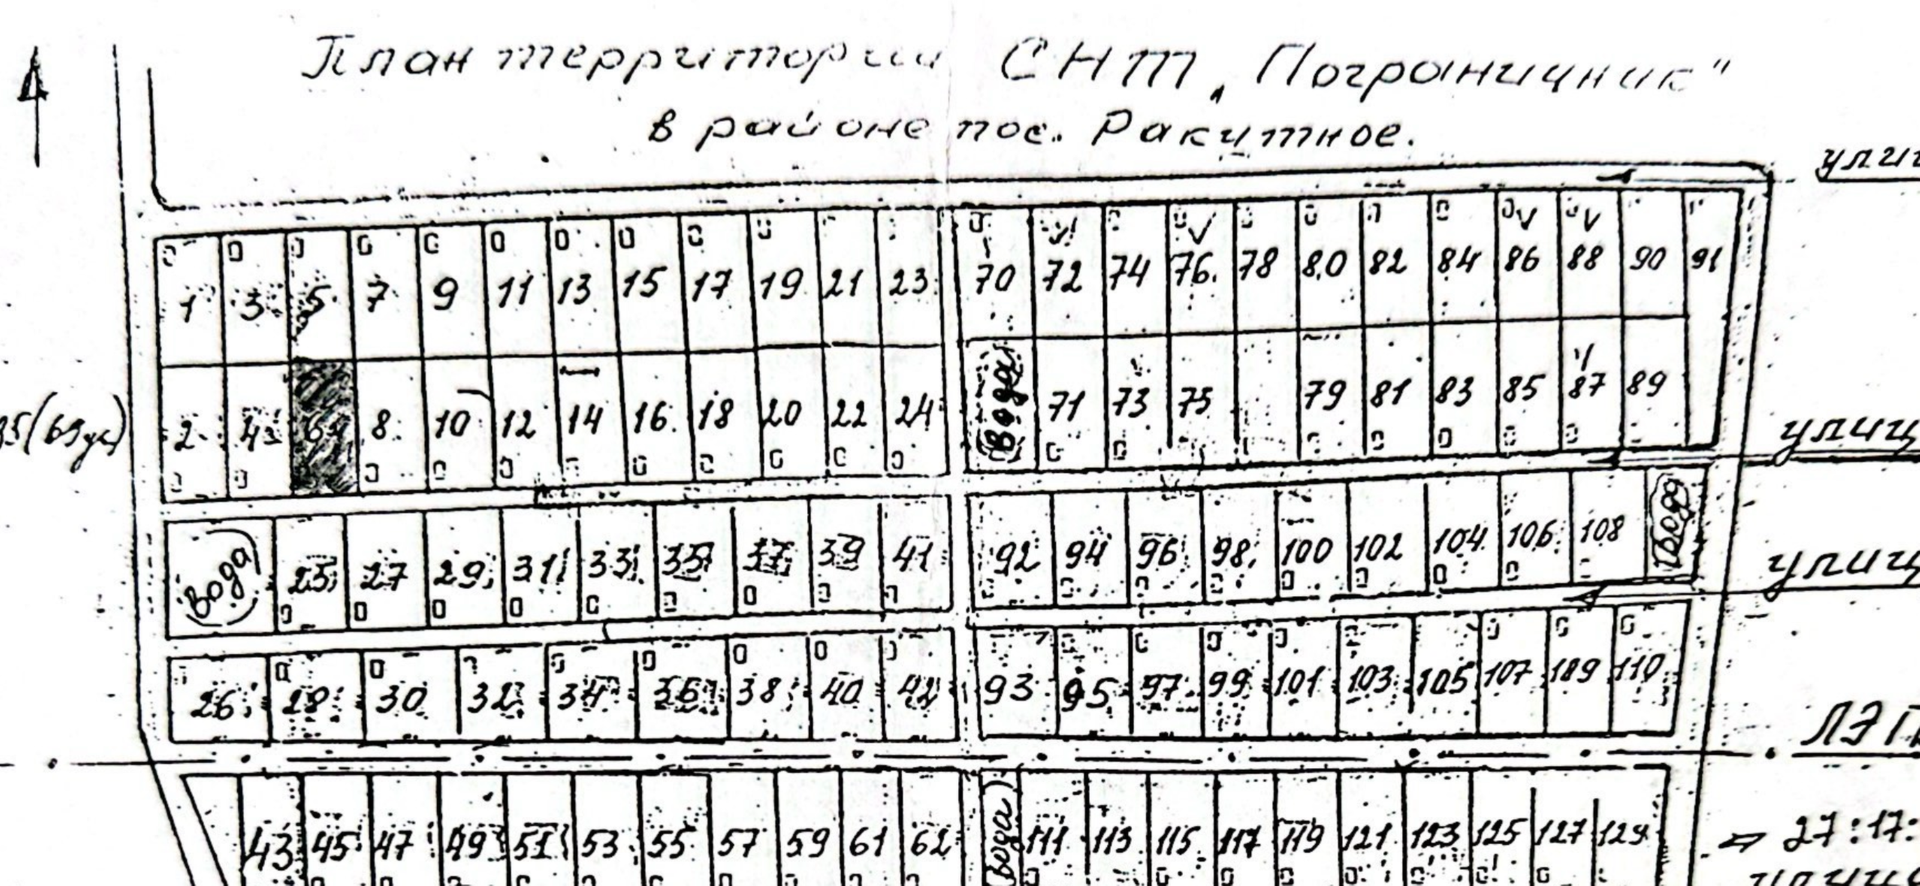 План территории СНТ „Пограничник"
в районе пос. Ракитное.
1 3 5 7 9 11 13 15 17 19 21 23 70 72 74 76. 78 80 82 84 86 88 90 91
2 4 6 8 10 12 14 16 18 20 22 24 Вода 71 73 75 79 81 83 85 87 89
улиц
Вода 25 27 29 31 33 35 37 39 41 92 94 96 98 100 102 104 106 108 Вода
улиц
26 28 30 32 34 36 38 40 42 93 95 97 99 101 103 105 107 109 110
ЛЭП
43 45 47 49 51 53 55 57 59 61 62 Вода 111 113 115 117 119 121 123 125 127 129
27:17: